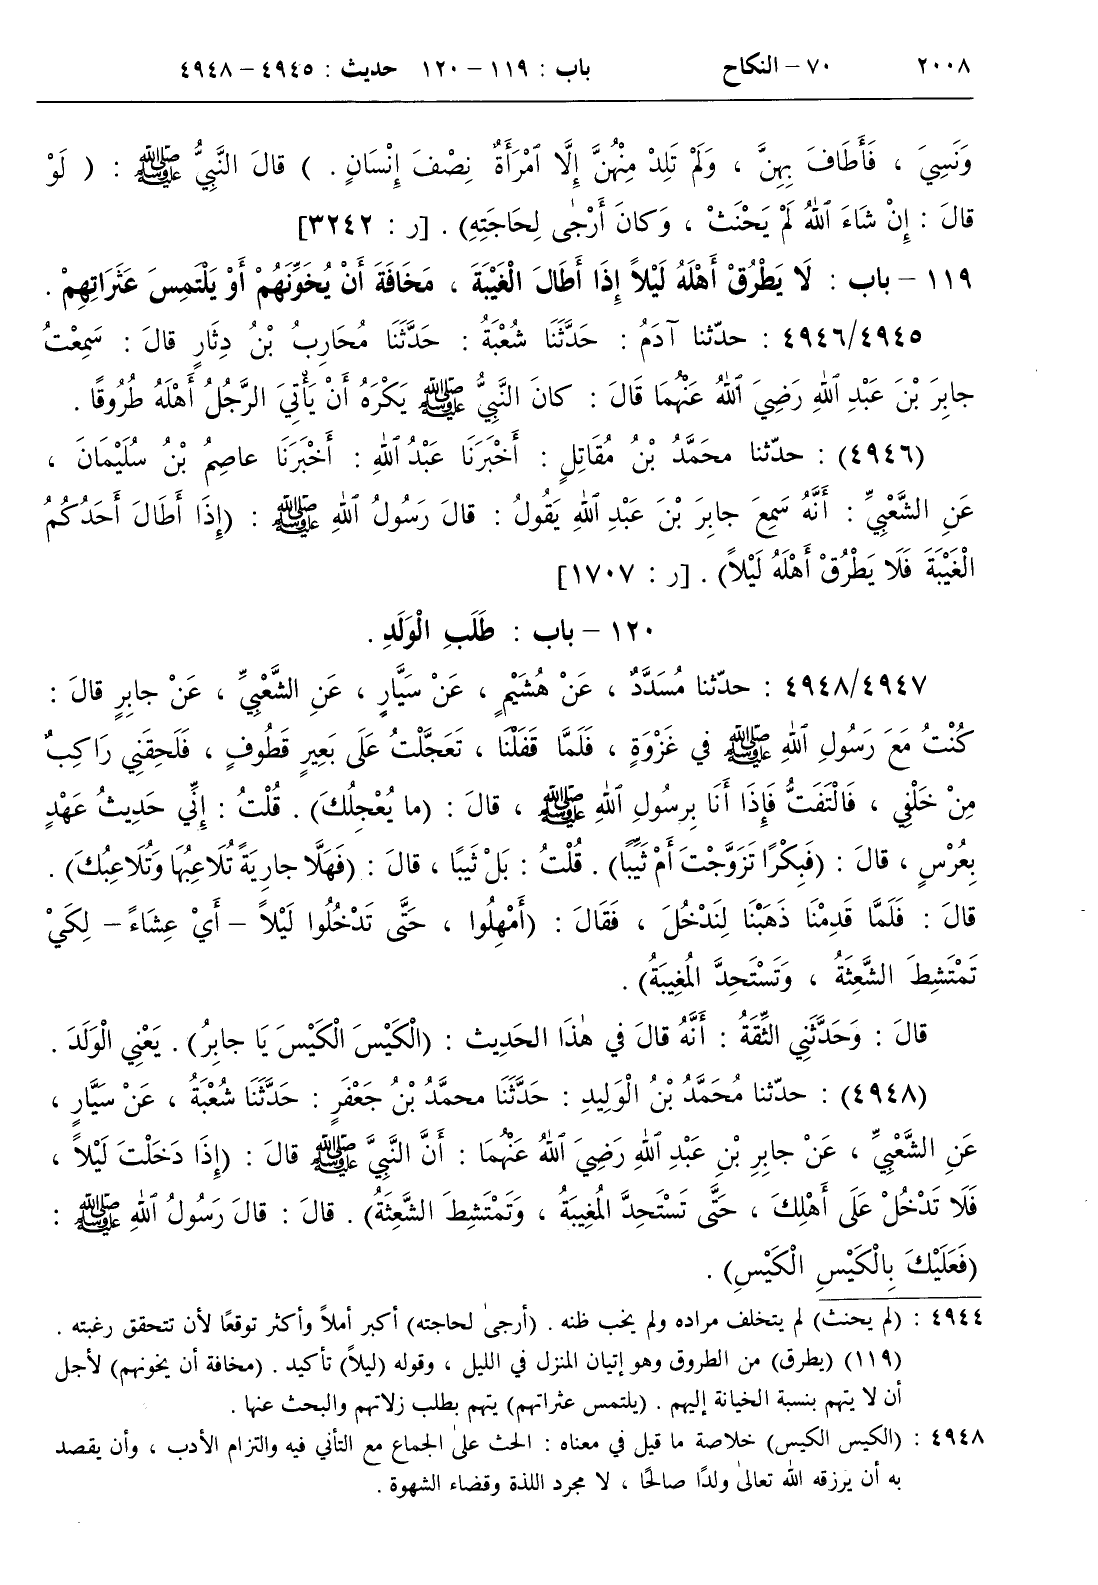 ٢٠٠٨ ٧٠ – النكاح باب : ١١٩ – ١٢٠ حديث : ٤٩٤٥ – ٤٩٤٨
وَنَسِيَ ، فَأَطَافَ بِهِنَّ ، وَلَمْ تَلِدْ مِنْهُنَّ إِلَّا ٱمْرَأَةٌ نِصْفَ إِنْسَانٍ . ) قالَ النَّبِيُّ ﷺ : ( لَوْ
قالَ : إِنْ شَاءَ ٱللهُ لَمْ يَحْنَثْ ، وَكانَ أَرْجٰى لِحَاجَتِهِ) . [ر : ٣٢٤٢]
١١٩ – باب : لَا يَطْرُقْ أَهْلَهُ لَيْلاً إِذَا أَطَالَ الْغَيْبَةَ ، مَخافَةَ أَنْ يُخَوِّنَهُمْ أَوْ يَلْتَمِسَ عَثَرَاتِهِمْ .
٤٩٤٦/٤٩٤٥ : حدّثنا آدَمُ : حَدَّثَنَا شُعْبَةُ : حَدَّثَنَا مُحَارِبُ بْنُ دِثَارٍ قالَ : سَمِعْتُ
جابِرَ بْنَ عَبْدِ ٱللهِ رَضِيَ ٱللهُ عَنْهُمَا قَالَ : كانَ النَّبِيُّ ﷺ يَكْرَهُ أَنْ يَأْتِيَ الرَّجُلُ أَهْلَهُ طُرُوقًا .
(٤٩٤٦) : حدّثنا محَمَّدُ بْنُ مُقَاتِلٍ : أَخْبَرَنَا عَبْدُ ٱللهِ : أَخْبَرَنَا عاصِمُ بْنُ سُلَيْمَانَ ،
عَنِ الشَّعْبِيِّ : أَنَّهُ سَمِعَ جابِرَ بْنَ عَبْدِ ٱللهِ يَقُولُ : قالَ رَسُولُ ٱللهِ ﷺ : (إِذَا أَطَالَ أَحَدُكُمُ
الْغَيْبَةَ فَلَا يَطْرُقْ أَهْلَهُ لَيْلاً) . [ر : ١٧٠٧]
١٢٠ – باب : طَلَبِ الْوَلَدِ .
٤٩٤٨/٤٩٤٧ : حدّثنا مُسَدَّدٌ ، عَنْ هُشَيْمٍ ، عَنْ سَيَّارٍ ، عَنِ الشَّعْبِيِّ ، عَنْ جابِرٍ قالَ :
كُنْتُ مَعَ رَسُولِ ٱللهِ ﷺ في غَزْوَةٍ ، فَلَمَّا قَفَلْنَا ، تَعَجَّلْتُ عَلَى بَعِيرٍ قَطُوفٍ ، فَلَحِقَنِي رَاكِبٌ
مِنْ خَلْفِي ، فَالْتَفَتُّ فَإِذَا أَنَا بِرسُولِ ٱللهِ ﷺ ، قالَ : (ما يُعْجِلُكَ) . قُلْتُ : إِنِّي حَدِيثُ عَهْدٍ
بِعُرْسٍ ، قالَ : (فَبِكْرًا تَزَوَّجْتَ أَمْ ثَيِّبًا) . قُلْتُ : بَلْ ثَيِّبًا ، قالَ : (فَهَلَّا جارِيَةً تُلَاعِبُهَا وَتُلَاعِبُكَ) .
قالَ : فَلَمَّا قَدِمْنَا ذَهَبْنَا لِنَدْخُلَ ، فَقَالَ : (أَمْهِلُوا ، حَتَّى تَدْخُلُوا لَيْلاً – أَيْ عِشَاءً – لِكَيْ
تَمْتَشِطَ الشَّعِثَةُ ، وَتَسْتَحِدَّ المُغِيبَةُ) .
قالَ : وَحَدَّثَنِي الثِّقَةُ : أَنَّهُ قالَ فِي هٰذَا الحَدِيث : (الْكَيْسَ الْكَيْسَ يَا جابِرُ) . يَعْنِي الْوَلَدَ .
(٤٩٤٨) : حدّثنا مُحَمَّدُ بْنُ الْوَلِيدِ : حَدَّثَنَا محمَّدُ بْنُ جَعْفَرٍ : حَدَّثَنَا شُعْبَةُ ، عَنْ سَيَّارٍ ،
عَنِ الشَّعْبِيِّ ، عَنْ جابِرِ بْنِ عَبْدِ ٱللهِ رَضِيَ ٱللهُ عَنْهُمَا : أَنَّ النَّبِيَّ ﷺ قالَ : (إِذَا دَخَلْتَ لَيْلاً ،
فَلَا تَدْخُلْ عَلَى أَهْلِكَ ، حَتَّى تَسْتَحِدَّ المُغِيبَةُ ، وَتَمْتَشِطَ الشَّعِثَةُ) . قالَ : قالَ رَسُولُ ٱللهِ ﷺ :
(فَعَلَيْكَ بِالْكَيْسِ الْكَيْسِ) .
٤٩٤٤ : (لم يحنث) لم يتخلف مراده ولم يخب ظنه . (أرجىٰ لحاجته) أكبر أملاً وأكثر توقعًا لأن تتحقق رغبته .
(١١٩) (يطرق) من الطروق وهو إتيان المنزل في الليل ، وقوله (ليلاً) تأكيد . (مخافة أن يخونهم) لأجل
أن لا يتهم بنسبة الخيانة إليهم . (يلتمس عثراتهم) يتهم بطلب زلاتهم والبحث عنها .
٤٩٤٨ : (الكيس الكيس) خلاصة ما قيل في معناه : الحث علىٰ الجماع مع التأني فيه والتزام الأدب ، وأن يقصد
به أن يرزقه الله تعالىٰ ولدًا صالحًا ، لا مجرد اللذة وقضاء الشهوة .